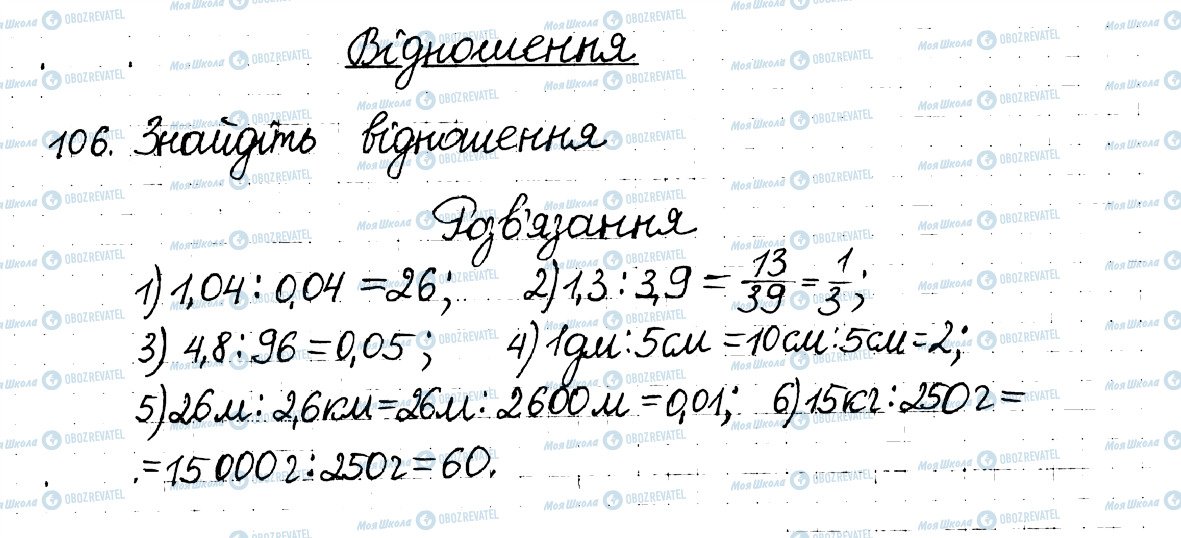 Відношення
106. Знайдіть відношення
Розв'язання
1) 1,04 : 0,04 = 26; 2) 1,3 : 3,9 = 13/39 = 1/3;
3) 4,8 : 96 = 0,05; 4) 1дм : 5см = 10см : 5см = 2;
5) 26м : 2,6км = 26м : 2600м = 0,01; 6) 15кг : 250г =
= 15000г : 250г = 60.
МояШкола OBOZREVATEL